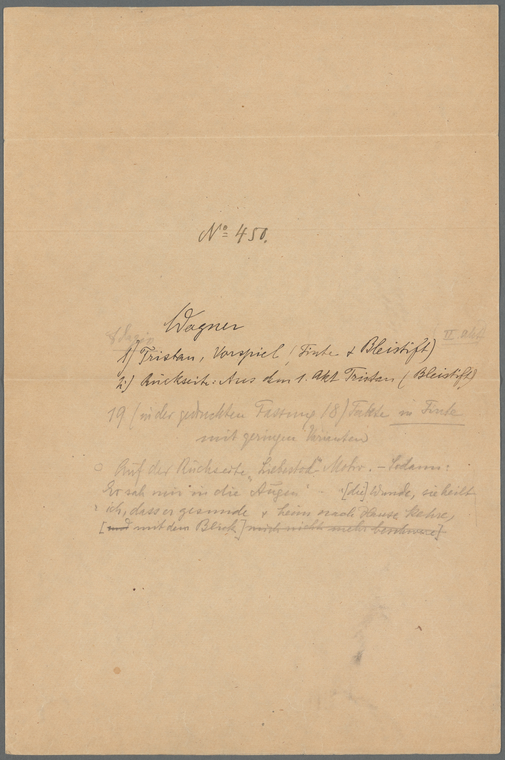 No 450.
Wagner
1) Tristan, Vorspiel (Tinte & Bleistift)
2.) Rückseite: Aus dem 1. Akt Tristan (Bleistift)
19 (in der gedruckten Fassung 18) Takte in Tinte
mit geringen Varianten
Auf der Rückseite "Liebestod" Motiv. – Sodann:
"Er sah mir in die Augen" [die] Wunde, sie heilt
ich, dass er gesunde & heim nach Hause kehre,
[und mit dem Blick] mich nicht mehr beschwere]